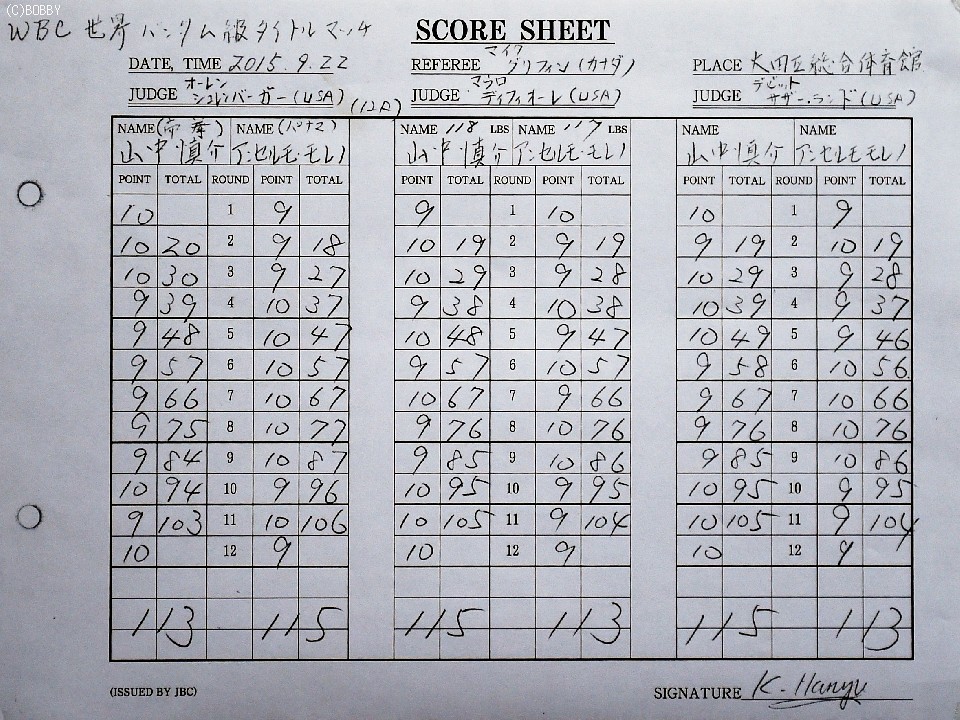 (C)BOBBY
WBC 世界 バンタム級タイトルマッチ
SCORE SHEET
DATE, TIME 2015.9.22
REFEREE マイク グリフィン(カナダ)
PLACE 大田区総合体育館
JUDGE オーレン シュレンバーガー(USA) (12R)
JUDGE マウロ ディフィオーレ(USA)
JUDGE デビット サザーランド(USA)
NAME(帝拳) NAME(パナマ) NAME 118 LBS NAME 117 LBS NAME NAME
山中慎介 アンセルモ・モレノ 山中慎介 アンセルモ・モレノ 山中慎介 アンセルモ・モレノ
POINT TOTAL ROUND POINT TOTAL POINT TOTAL ROUND POINT TOTAL POINT TOTAL ROUND POINT TOTAL
10 1 9 9 1 10 10 1 9
10 20 2 9 18 10 19 2 9 19 9 19 2 10 19
10 30 3 9 27 10 29 3 9 28 10 29 3 9 28
9 39 4 10 37 9 38 4 10 38 10 39 4 9 37
9 48 5 10 47 10 48 5 9 47 10 49 5 9 46
9 57 6 10 57 9 57 6 10 57 9 58 6 10 56
9 66 7 10 67 10 67 7 9 66 9 67 7 10 66
9 75 8 10 77 9 76 8 10 76 9 76 8 10 76
9 84 9 10 87 9 85 9 10 86 9 85 9 10 86
10 94 10 9 96 10 95 10 9 95 10 95 10 9 95
9 103 11 10 106 10 105 11 9 104 10 105 11 9 104
10 12 9 10 12 9 10 12 9
113 115 115 113 115 113
(ISSUED BY JBC)
SIGNATURE K. Hanyu